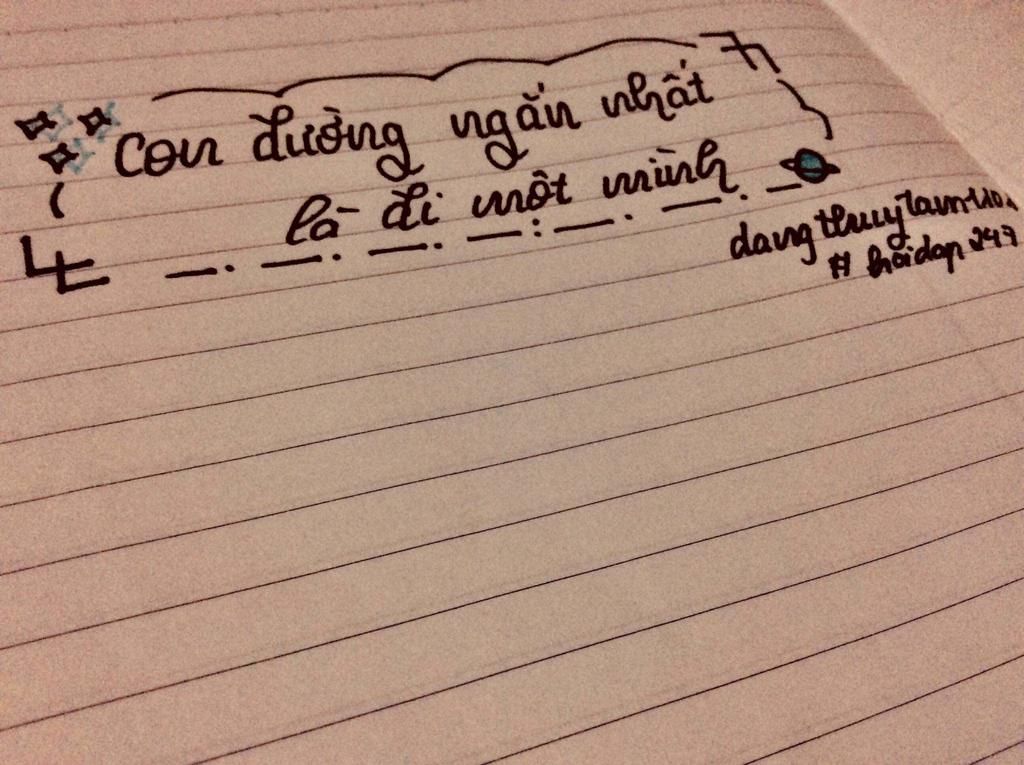 Con đường ngắn nhất
là đi một mình
dangthuytam
# hoidap247